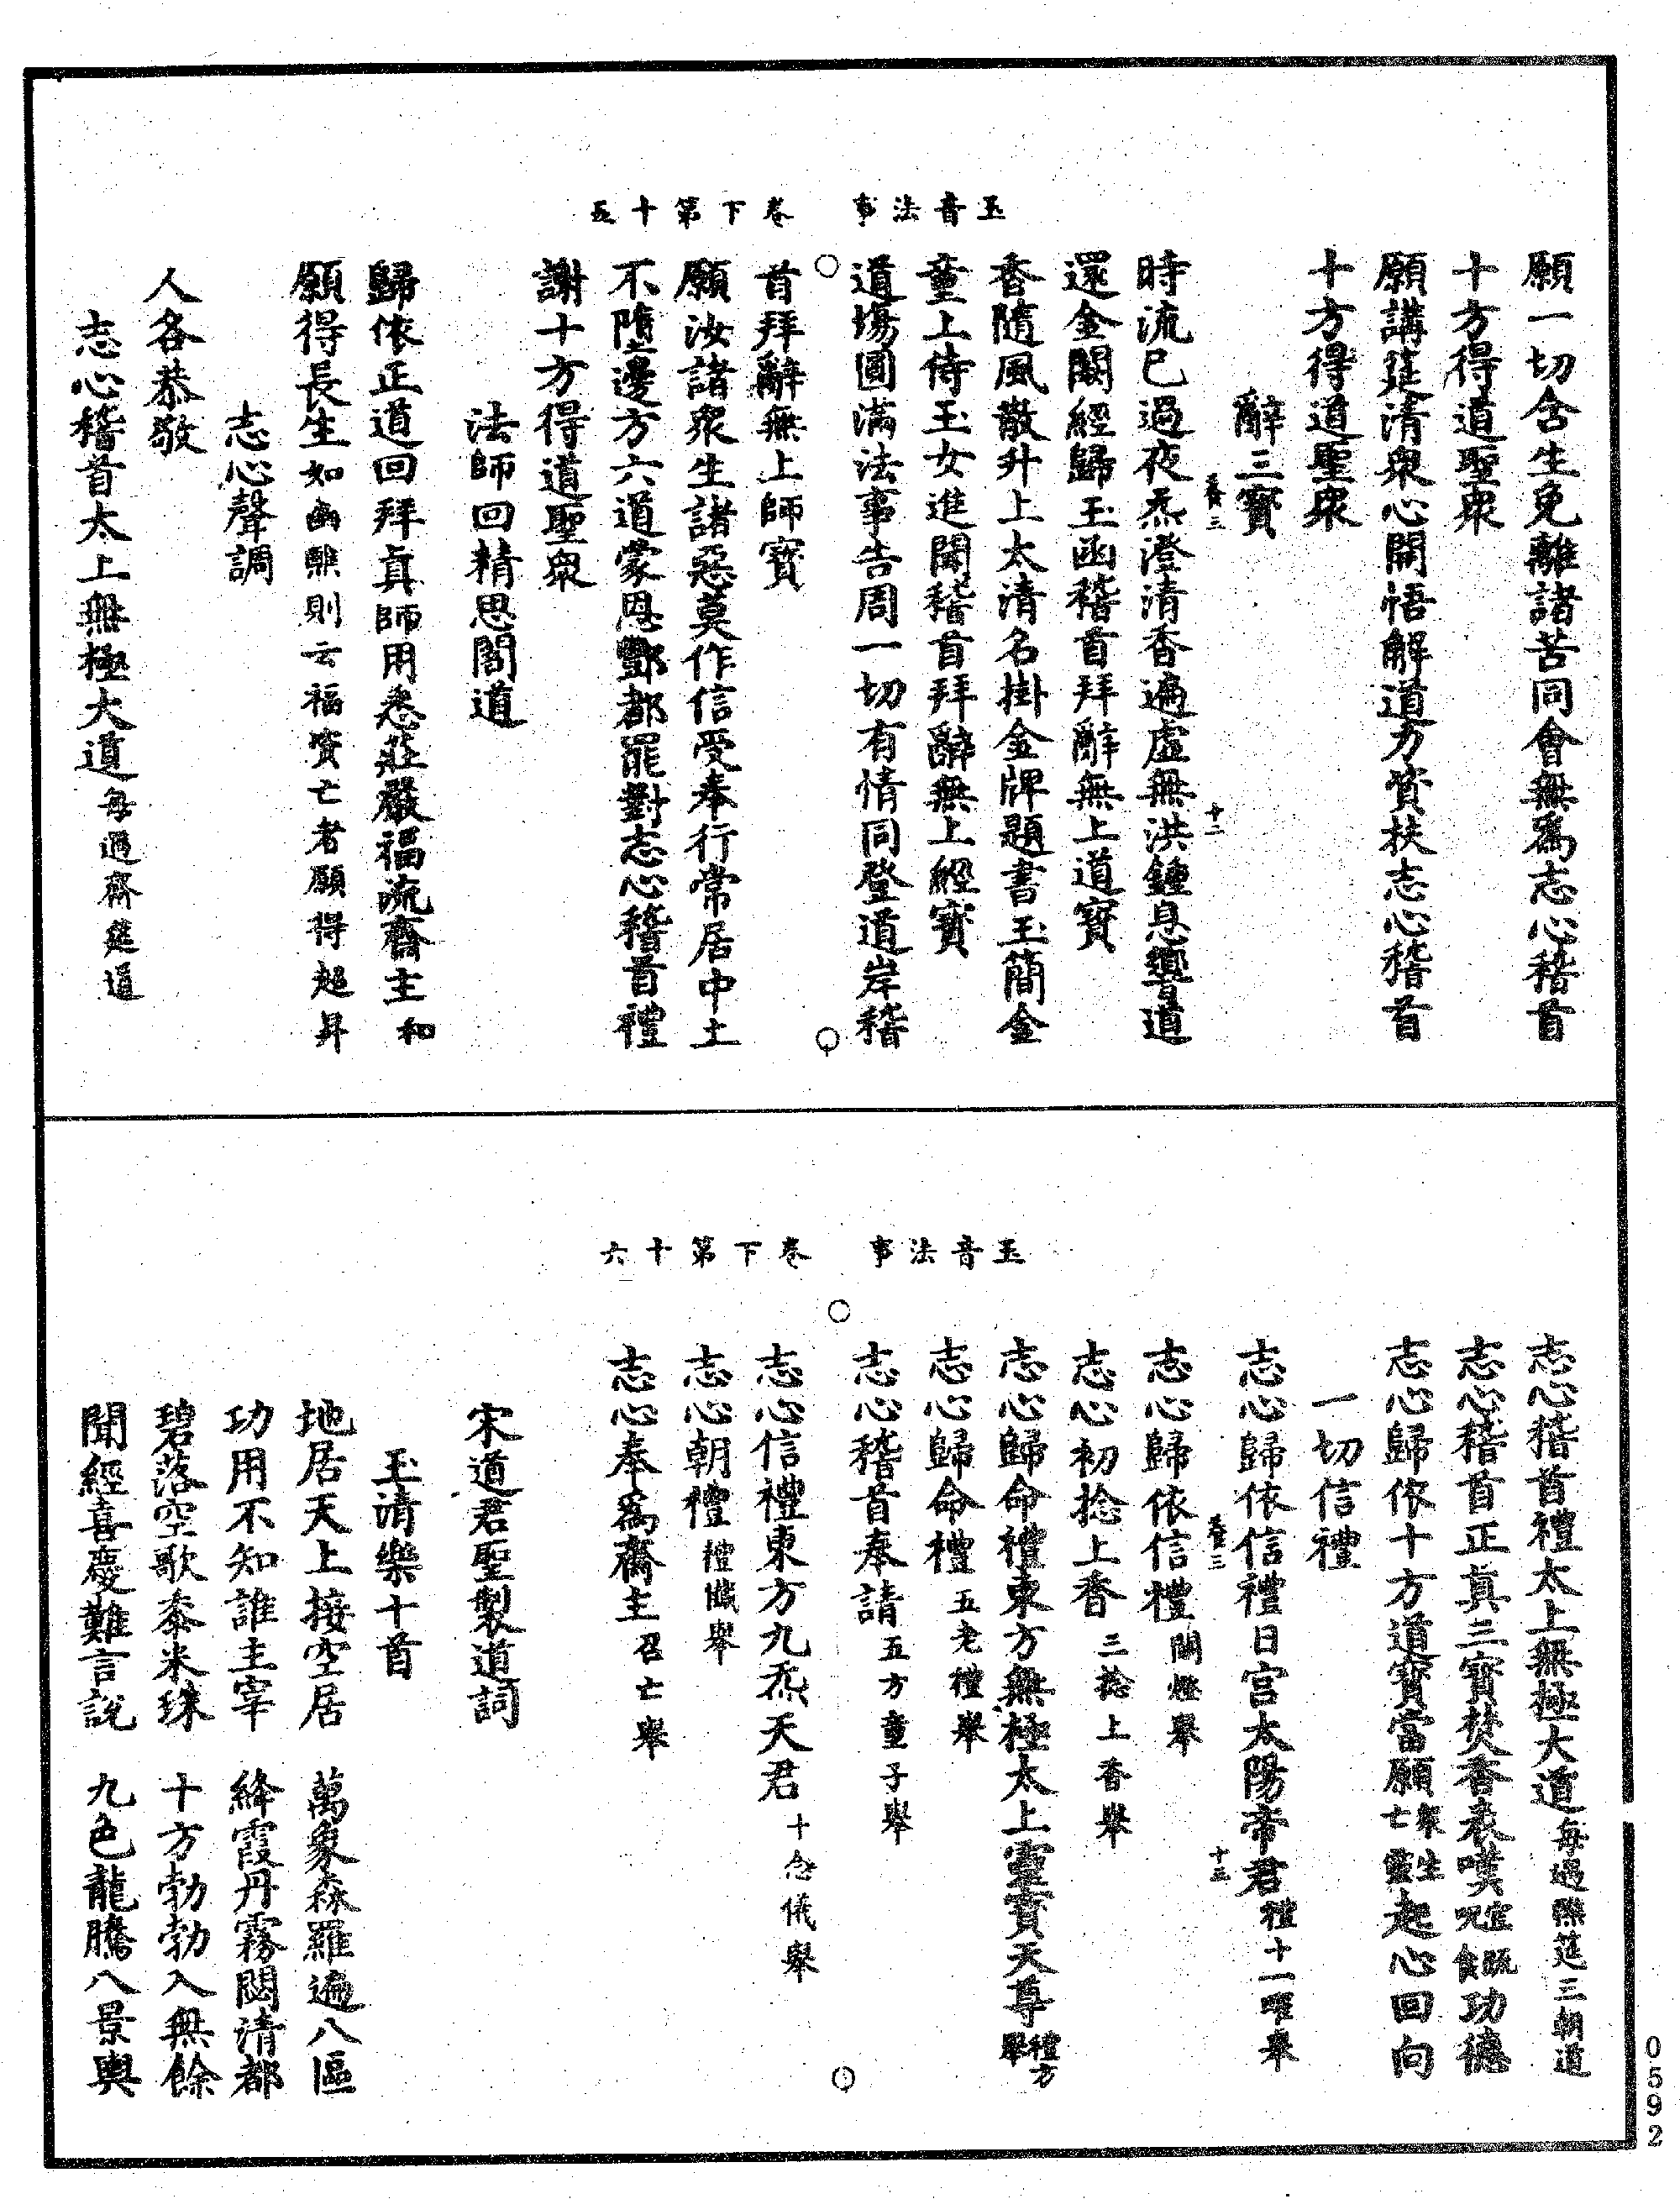 玉音法事　卷下第十五
願一切含生免離諸苦同會無爲志心稽首
十方得道聖衆
願講筵清衆心開悟解道力資扶志心稽首
十方得道聖衆
辭三寶
養三　十二
時流已過夜炁澄清香遍虛無洪鍾息響道
還金闕經歸玉函稽首拜辭無上道寶
香隨風散升上太清名掛金牌題書玉簡金
童上侍玉女進聞稽首拜辭無上經寶
道場圓滿法事告周一切有情同登道岸稽
首拜辭無上師寶
願汝諸衆生諸惡莫作信受奉行常居中土
不墮邊方六道蒙恩酆都罷對志心稽首禮
謝十方得道聖衆
法師回精思閤道
歸依正道回拜眞師用悉莊嚴福流齋主和
願得長生如幽醮則云福資亡者願得超昇
志心聲調
人各恭敬
志心稽首太上無極大道每過齋筵道
玉音法事　卷下第十六
志心稽首禮太上無極大道每過醮筵三朝道
志心稽首正眞三寶焚香表嘆宣疏呪食功德
志心歸依十方道寶當願衆生亡靈起心回向
一切信禮
志心歸依信禮日宮太陽帝君禮十一曜舉
養三　十三
志心歸依信禮關燈舉
志心初捻上香三捻上香舉
志心歸命禮東方無極太上靈寶天尊禮方舉
志心歸命禮五老禮舉
志心稽首奉請五方童子舉
志心信禮東方九炁天君十念儀舉
志心朝禮禮懺舉
志心奉爲齋主召亡舉
宋道君聖製道詞
玉清樂十首
地居天上接空居　萬象森羅遍八區
功用不知誰主宰　絳霞丹霧閟清都
碧落空歌黍米珠　十方勃勃入無餘
聞經喜慶難言說　九色龍騰八景輿
0592